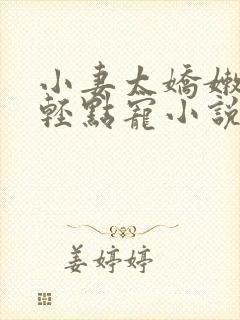 小妻太嬌嫩
輕點寵小說
姜婷婷